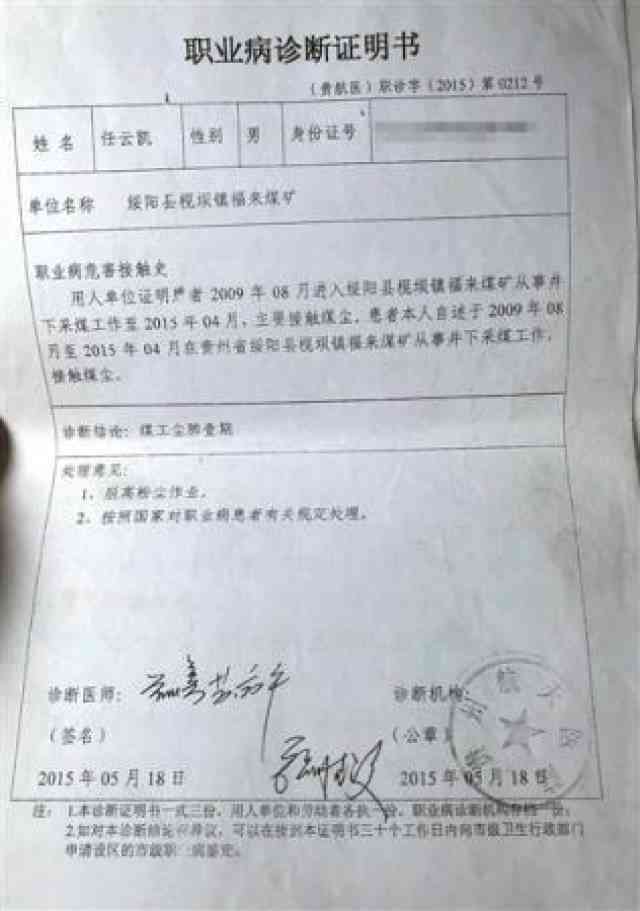 职业病诊断证明书
(贵航医)职诊字(2015)第0212号
姓名 任云凯 性别 男 身份证号
单位名称 绥阳县枧坝镇福来煤矿
职业病危害接触史
用人单位证明患者2009年08月进入绥阳县枧坝镇福来煤矿从事井
下采煤工作至2015年04月,主要接触煤尘,患者本人自述于2009年08
月至2015年04月在贵州省绥阳县枧坝镇福来煤矿从事井下采煤工作,
接触煤尘。
诊断结论:煤工尘肺壹期
处理意见:
1、脱离粉尘作业。
2、按照国家对职业病患者有关规定处理。
诊断医师: 诊断机构:
(签名) (公章)
2015年05月18日 2015年05月18日
注: 1.本诊断证明书一式三份,用人单位和劳动者各执一份,职业病诊断机构存档一份;
2.如对本诊断结论有异议,可以在接到本证明书三十个工作日内向市级卫生行政部门
申请设区的市级职 病鉴定。